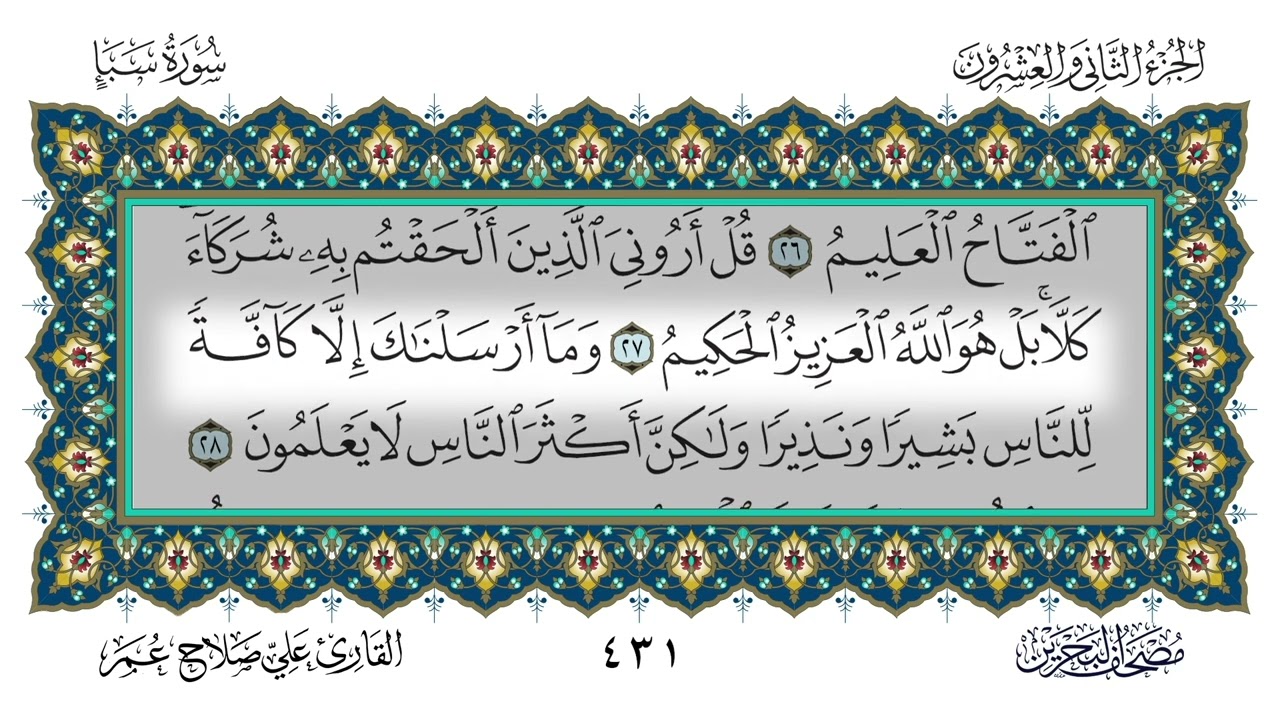 الجُزْءُ الثَّانِي وَالعِشْرُونَ
سُورَةُ سَبَإٍ
ٱلْفَتَّاحُ ٱلْعَلِيمُ ٢٦ قُلْ أَرُونِىَ ٱلَّذِينَ أَلْحَقْتُم بِهِۦ شُرَكَآءَ
كَلَّاۚ بَلْ هُوَ ٱللَّهُ ٱلْعَزِيزُ ٱلْحَكِيمُ ٢٧ وَمَآ أَرْسَلْنَٰكَ إِلَّا كَآفَّةً
لِّلنَّاسِ بَشِيرًا وَنَذِيرًا وَلَٰكِنَّ أَكْثَرَ ٱلنَّاسِ لَا يَعْلَمُونَ ٢٨
مُصْحَفُ البَحْرَيْن
٤٣١
القَارِئ عَلِيّ صَلَاح عُمَر